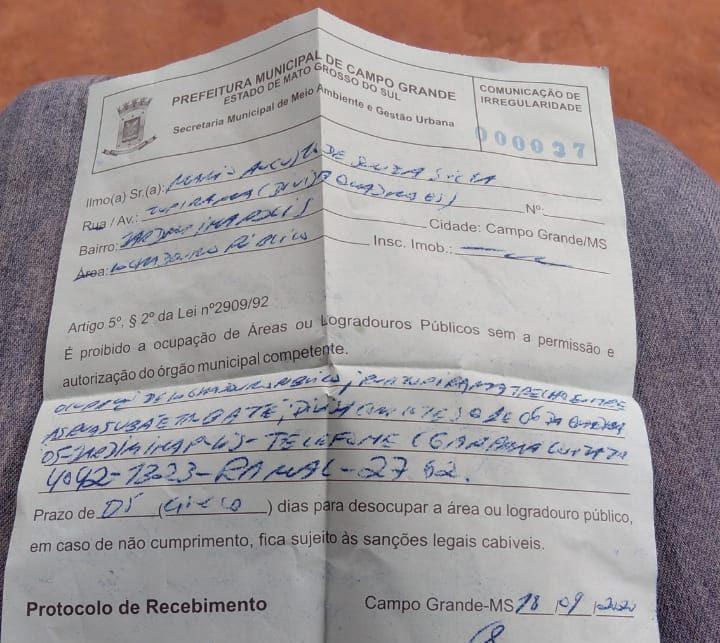 PREFEITURA MUNICIPAL DE CAMPO GRANDE
ESTADO DE MATO GROSSO DO SUL
Secretaria Municipal de Meio Ambiente e Gestão Urbana
COMUNICAÇÃO DE
IRREGULARIDADE
000037
Ilmo(a) Sr.(a): AUGUSTO DE SOUZA SILVA
Rua / Av.: Nº:
Bairro: JARDIM Cidade: Campo Grande/MS
Área: LOGRADOURO PÚBLICO Insc. Imob.:
Artigo 5º, § 2º da Lei nº2909/92
É proibido a ocupação de Áreas ou Logradouros Públicos sem a permissão e
autorização do órgão municipal competente.
OCUPAÇÃO DE LOGRADOURO PÚBLICO, TRECHO ENTRE
AS RUAS
05 - JARDIM - TELEFONE
4042-1323-RAMAL-2752.
Prazo de 05 (CINCO) dias para desocupar a área ou logradouro público,
em caso de não cumprimento, fica sujeito às sanções legais cabiveis.
Protocolo de Recebimento Campo Grande-MS 18 09 2020